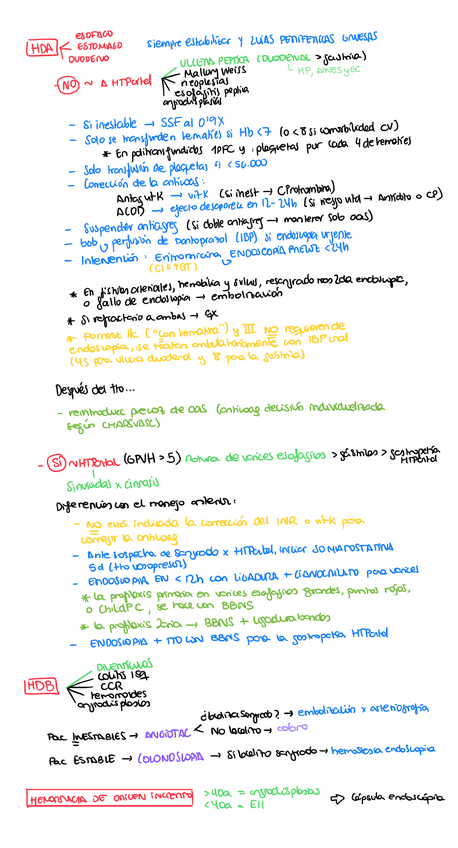 HDA
ESÓFAGO
ESTOMAGO
DUODENO
siempre estabilizar y 2 VIAS PERIFERICAS GRUESAS
- NO ~ Δ HTPortal
ULCERA PEPTICA (DUODENAL > gastrica)
HP, AINES y GC
Mallory Weiss
neoplasias
esofagitis peptica
angiodisplasias
- Si inestable → SSF al 0'9%
- Solo se transfunden hematíes si Hb <7 (o <8 si comorbilidad CV)
* En politransfundidos 1PFC y 1 plaquetas por cada 4 de hematíes
- Solo transfusión de plaquetas si <50.000
- Corrección de la anticoag:
Antag vitK → vitK (si inest → CProtrombina)
ACOD → efecto desaparece en 12-24h (si riesgo vital → Antídoto o CP)
- Suspender antiagreg (si doble antiagreg → mantener solo aas)
- bolo y perfusión de Pantoprazol (IBP) si endoscopia urgente
- Intervención: Eritromicina y ENDOSCOPIA PRECOZ <24h
(CI si ↑QT)
* En fístulas arteriales, hemobilia y resangrado tras 2da endoscopia,
o fallo de endoscopia → embolización
* Si refractario a ambas → QX
* Forrest IIc ("con hematina") y III NO requieren de
endoscopia, se tratan ambulatoriamente con IBP oral
(4s para ulcera duodenal y 8 para la gastrica)
Después del tto...
- reintroducir precoz de aas (anticoag decisión individualizada
según CHADSVASC)
- SÍ ~ HTPortal (GPVH > 5) Rotura de varices esofagicas > gástricas > gastropatía
HTPortal
Sinusoidal x cirrosis
Diferencias con el manejo anterior:
- NO está indicada la corrección del INR o vitK para
corregir la anticoag
- Ante sospecha de sangrado x HTPortal, iniciar SOMATOSTATINA
5d (tto vasopresor)
- ENDOSCOPIA EN <12h con LIGADURA + CIANOCRILATO para varices
* la profilaxis primaria en varices esofagicas grandes, puntos rojos,
o Child PC, se hace con BBNS
* la profilaxis 2aria → BBNS + ligadura bandas
- ENDOSCOPIA + TTO CON BBNS para la gastropatía HTPortal
HDB
DIVERTÍCULOS
colitis ISQ
CCR
hemorroides
angiodisplasias
Pac INESTABLES → ANGIOTAC
¿localiza sangrado? → embolización x arteriografía
No localizo →
Pac ESTABLE → COLONOSCOPIA → Si localizo sangrado → hemostasia endoscopica
HEMORRAGIA DE ORIGEN INCIERTO
>40a = angiodisplasias
<40a = EII
⇨ Cápsula endoscópica